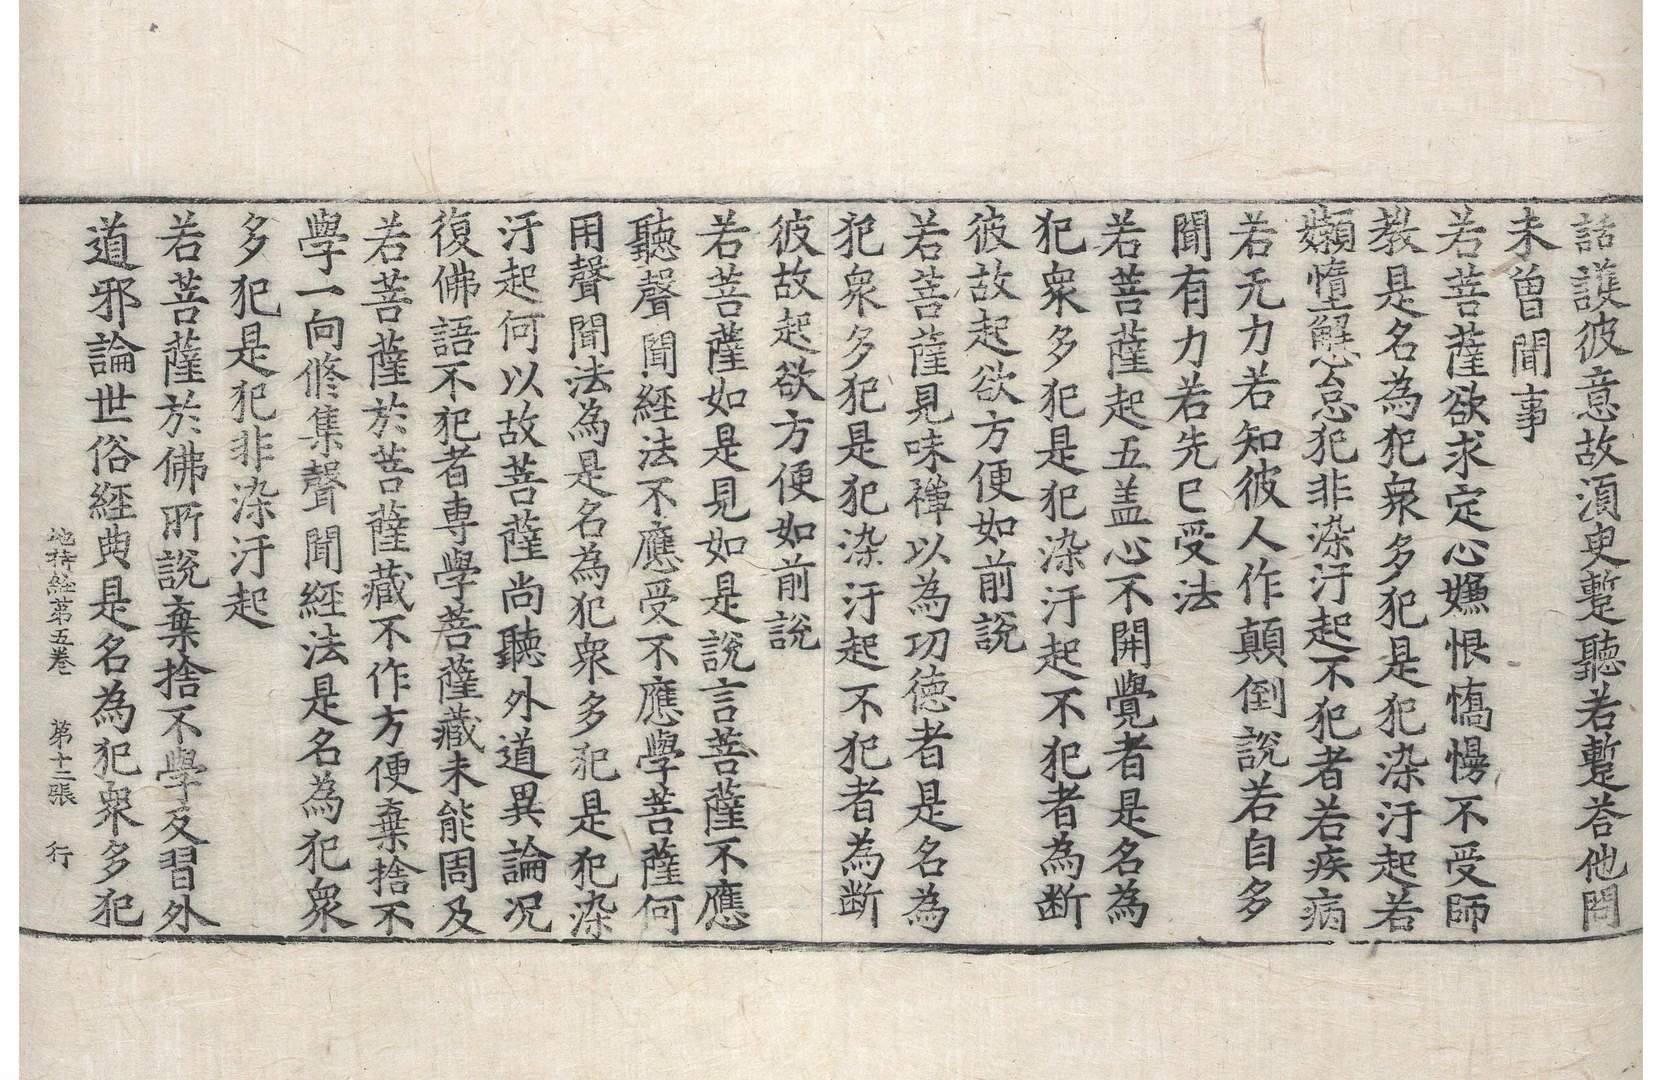 話護彼意故湏臾蹔聽若蹔荅他問
未曾聞事
若菩薩欲求定心嫌恨憍慢不受師
教是名為犯衆多犯是犯染汙起若
嬾墮懈怠犯非染汙起不犯者若疾病
若无力若知彼人作顛倒說若自多
聞有力若先已受法
若菩薩起五盖心不開覺者是名為
犯衆多犯是犯染汙起不犯者為斷
彼故起欲方便如前說
若菩薩見味禪以為功德者是名為
犯衆多犯是犯染汙起不犯者為斷
彼故起欲方便如前說
若菩薩如是見如是說言菩薩不應
聽聲聞經法不應受不應學菩薩何
用聲聞法為是名為犯衆多犯是犯染
汙起何以故菩薩尚聽外道異論况
復佛語不犯者専學菩薩藏未能周及
若菩薩於菩薩藏不作方便棄捨不
學一向修集聲聞經法是名為犯衆
多犯是犯非染汙起
若菩薩於佛所說棄捨不學反習外
道邪論世俗經典是名為犯衆多犯
地持經第五卷 第十二張 行